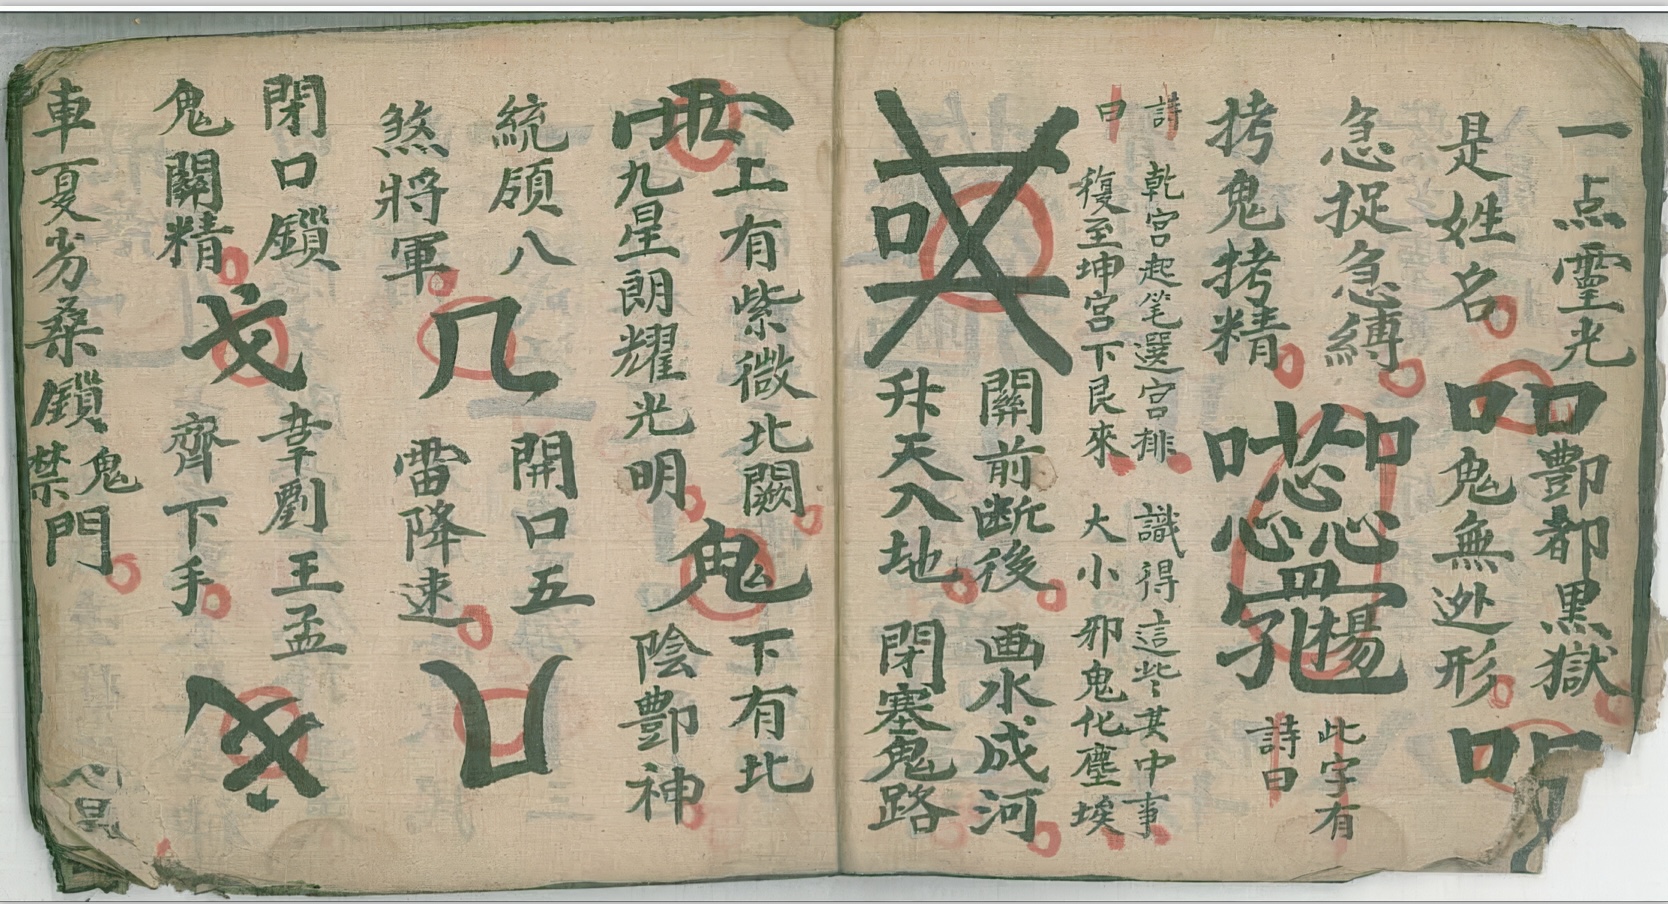 一点靈光
是姓名
酆都黑獄
鬼無迯形
急捉急縛
拷鬼拷精
此字有
詩曰
詩曰
乾宮起笔選宮排
複至坤宮下艮來
識得這些其中事
大小邪鬼化塵埃
關前断後
升天入地
画水成河
閉塞鬼路
上有紫微北闕
九星朗耀光明
鬼
下有北
陰酆神
統領八
煞將軍
開口五
雷降速
閉口鎖
鬼關精
韋劉王孟
齊下手
車夏劣桑鎖鬼
禁門